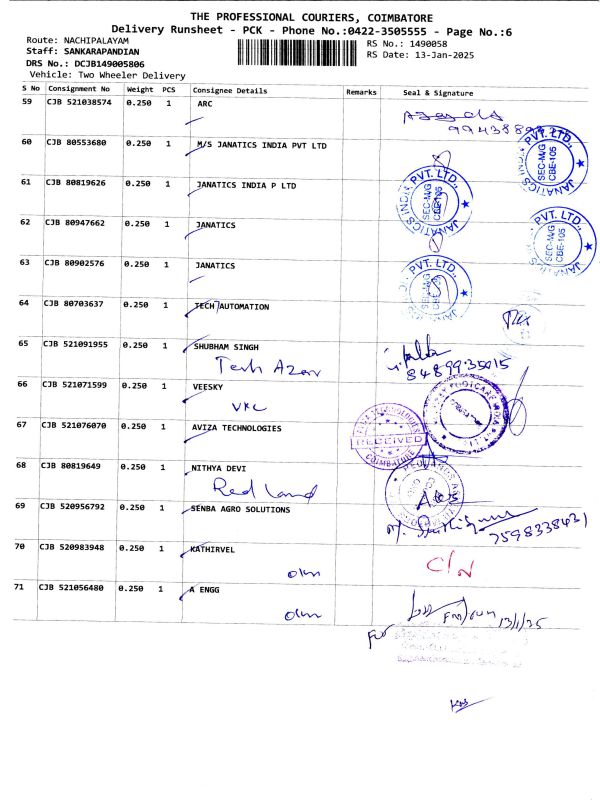 THE PROFESSIONAL COURIERS, COIMBATORE
Delivery Runsheet - PCK - Phone No.:0422-3505555 - Page No.:6
Route: NACHIPALAYAM
RS No.: 1490058
Staff: SANKARAPANDIAN
RS Date: 13-Jan-2025
DRS No.: DCJB149005806
Vehicle: Two Wheeler Delivery
S No Consignment No Weight PCS Consignee Details Remarks Seal & Signature
59 CJB 521038574 0.250 1 ARC
60 CJB 80553680 0.250 1 M/S JANATICS INDIA PVT LTD
JANATICS INDIA PVT. LTD., SEC-M/G CBE-105
61 CJB 80819626 0.250 1 JANATICS INDIA P LTD
JANATICS INDIA PVT. LTD., SEC-M/G CBE-105
62 CJB 80947662 0.250 1 JANATICS
JANATICS PVT. LTD., SEC-M/G CBE-105
63 CJB 80902576 0.250 1 JANATICS
PVT. LTD.,
64 CJB 80703637 0.250 1 TECH AUTOMATION
65 CJB 521091955 0.250 1 SHUBHAM SINGH
Tech Azar
66 CJB 521071599 0.250 1 VEESKY
VKC
67 CJB 521076070 0.250 1 AVIZA TECHNOLOGIES
RECEIVED
COIMBATORE
68 CJB 80819649 0.250 1 NITHYA DEVI
Red Land
69 CJB 520956792 0.250 1 SENBA AGRO SOLUTIONS
7598338431
70 CJB 520983948 0.250 1 KATHIRVEL
C/N
71 CJB 521056480 0.250 1 A ENGG
13/1/25
For